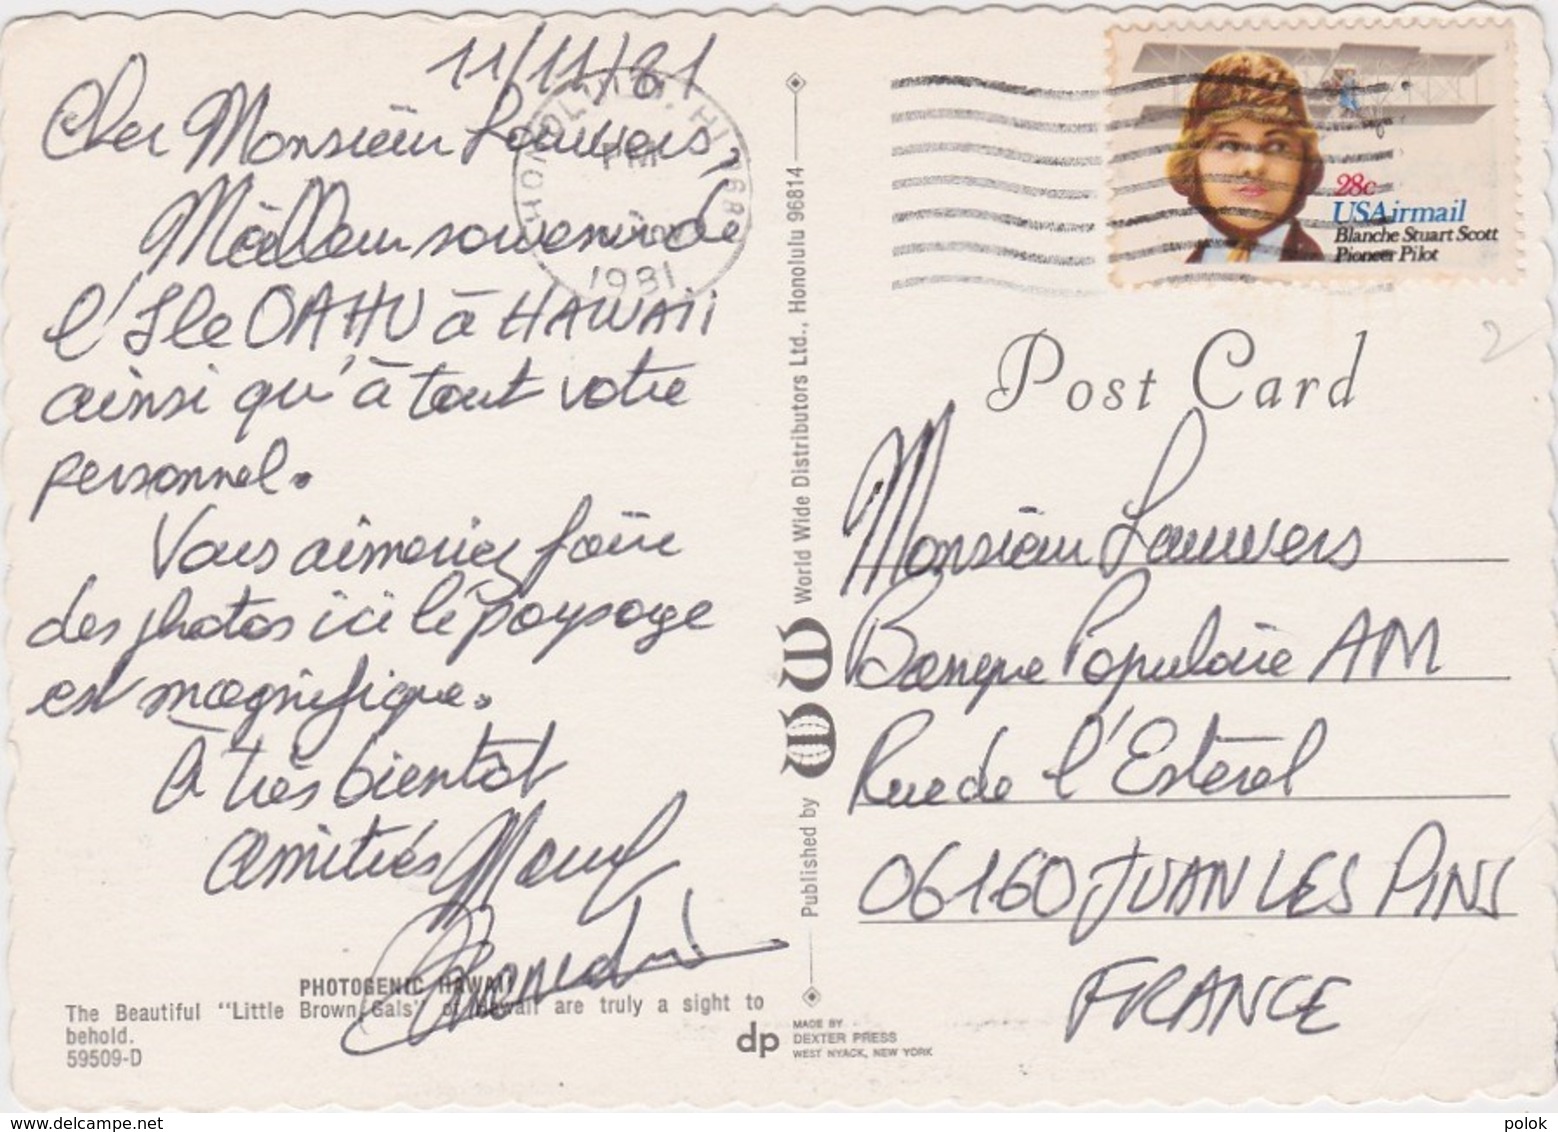 11/11/81
Cher Monsieur Lauwers,
Meilleur souvenir de
l'Ile OAHU à HAWAii
ainsi qu'à tout votre
personnel.
Vous aimeriez faire
des photos ici le paysage
est magnifique.
à très bientôt
amitiés
PHOTOGENIC HAWAII
The Beautiful "Little Brown Gals" of Hawaii are truly a sight to
behold.
59509-D
HONOLULU, HI 968
PM
1981
Published by World Wide Distributors Ltd., Honolulu 96814
dp
MADE BY
DEXTER PRESS
WEST NYACK, NEW YORK
28c
USAirmail
Blanche Stuart Scott
Pioneer Pilot
2
Post Card
Monsieur Lauwers
Banque Populaire AM
Rue de l'Estérel
06160 JUAN LES PINS
FRANCE
www.delcampe.net
polok